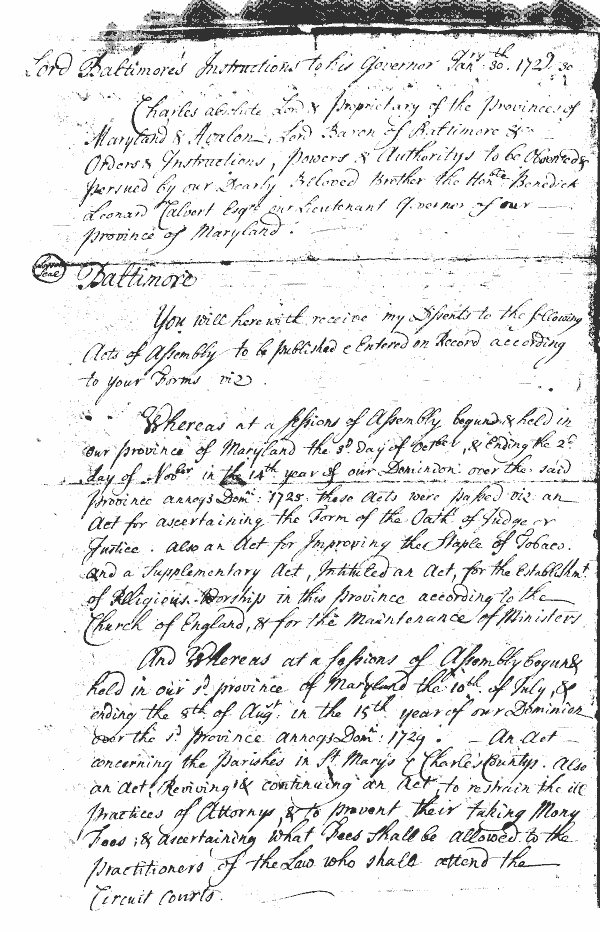 Lord Baltimore's Instructions to his Governor Janry 30th. 1729.30
Charles absolute Lord & Proprietary of the Provinces of
Maryland & Avalon, Lord Baron of Baltimore &c
Orders & Instructions, Powers & Authoritys to be Observed &
persued by our Dearly Beloved Brother the Honble Benedick
Leonard Calvert Esqr. our Lieutenant Governor of our
province of Maryland.
Seal
Baltimore
You will herewith receive my Dissents to the following
Acts of Assembly to be published & Entered on Record according
to your Forms viz.
Whereas at a sessions of Assembly begun & held in
our province of Maryland the 3d day of October, & Ending the 2d
day of Novber in the 14th year of our Dominion over the said
province annoq Domi: 1728 these Acts were passed viz an
Act for ascertaining the Form of the Oath of Judge or
Justice. Also an Act for Improving the Staple of Tobaco.
and a Supplementary Act, Intituled an Act, for the Establishmt
of Religious Worship in this Province according to the
Church of England, & for the Maintenance of Ministers
And Whereas at a Sessions of Assembly begun &
held in our sd province of Maryland the 10th. of July, &
ending the 8th. of Augst. in the 15th year of our Dominion
over the sd Province annoq Domi: 1729. An Act
concerning the Parishes in St. Mary's & Charles Countys. Also
an Act, Reviving & continuing an Act to restrain the ill
practices of Attornys, & to prevent their taking Mony
Fees; & ascertaining what Fees shall be allowed to the
Practitioners of the Law who shall attend the
Circuit Courts.